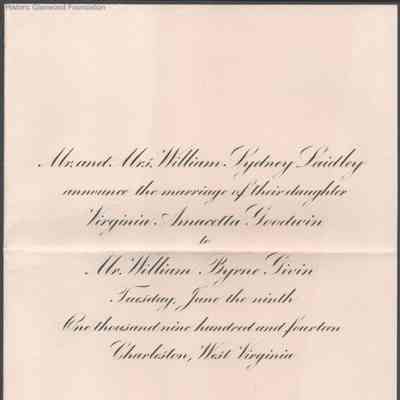 Historic Glenwood Foundation
Mr. and Mrs. William Sydney Laidley
announce the marriage of their daughter
Virginia Annacetta Goodwin
to
Mr. William Byrne Givin
Tuesday, June the ninth
One thousand nine hundred and fourteen
Charleston, West Virginia